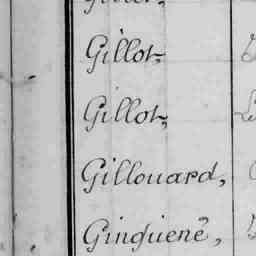 Gillot,
Gillot,
Gillouard,
Ginguené,